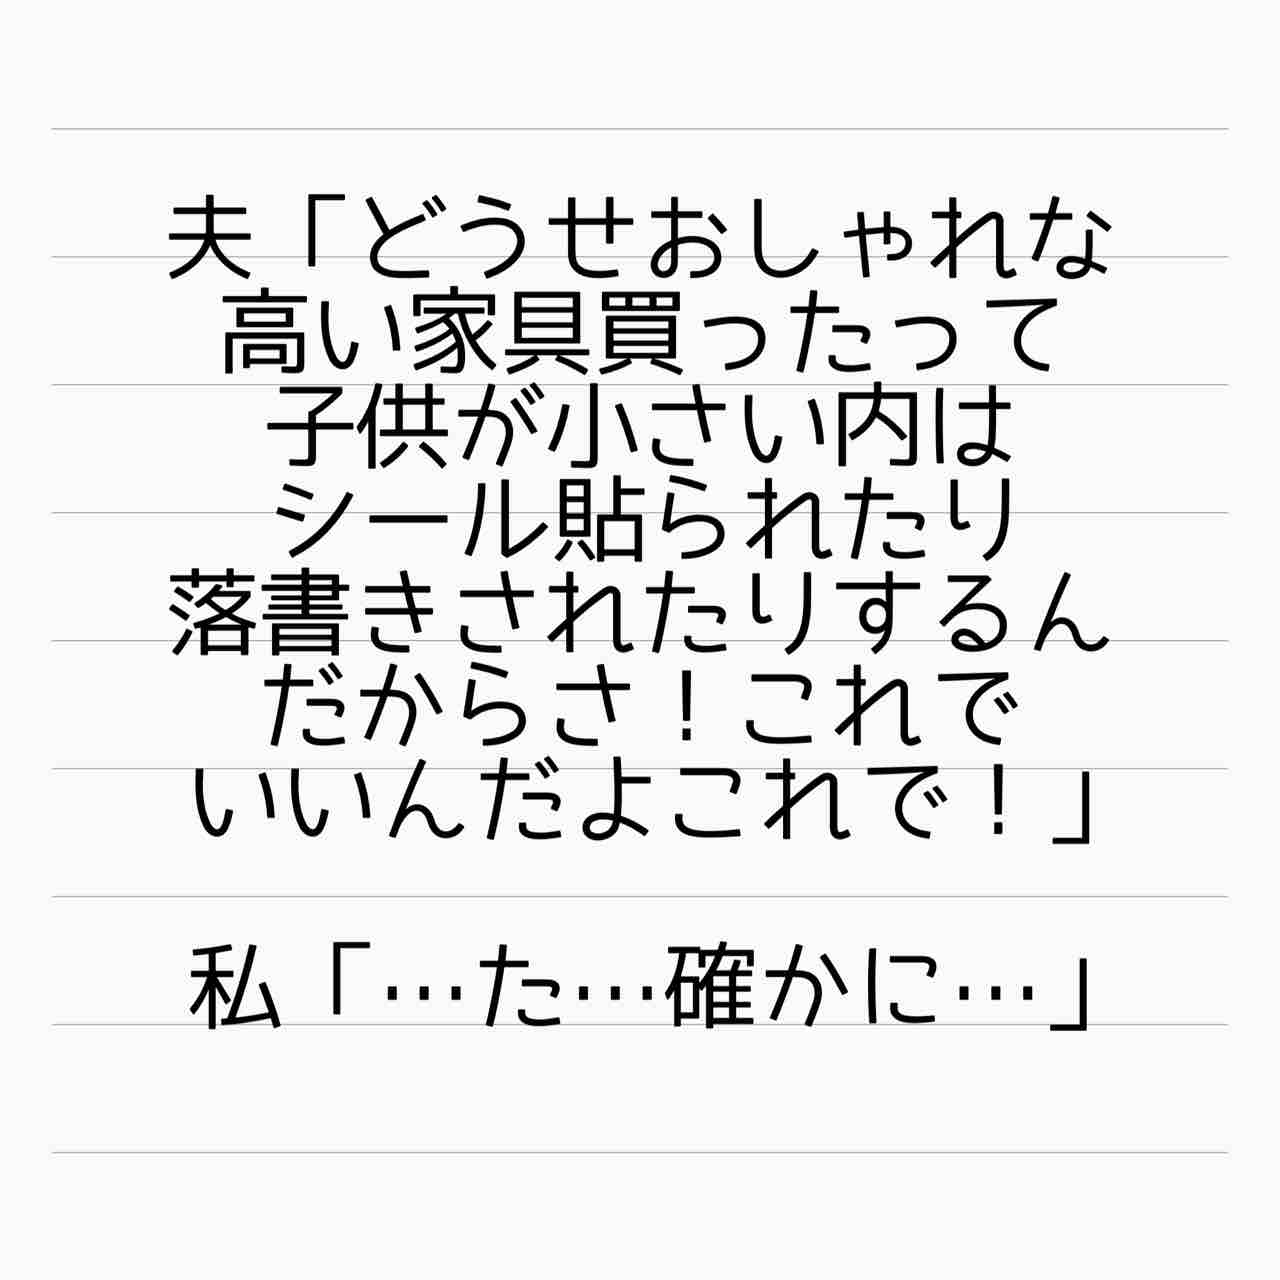 夫「どうせおしゃれな
高い家具買ったって
子供が小さい内は
シール貼られたり
落書きされたりするん
だからさ！これで
いいんだよこれで！」
私「…た…確かに…」